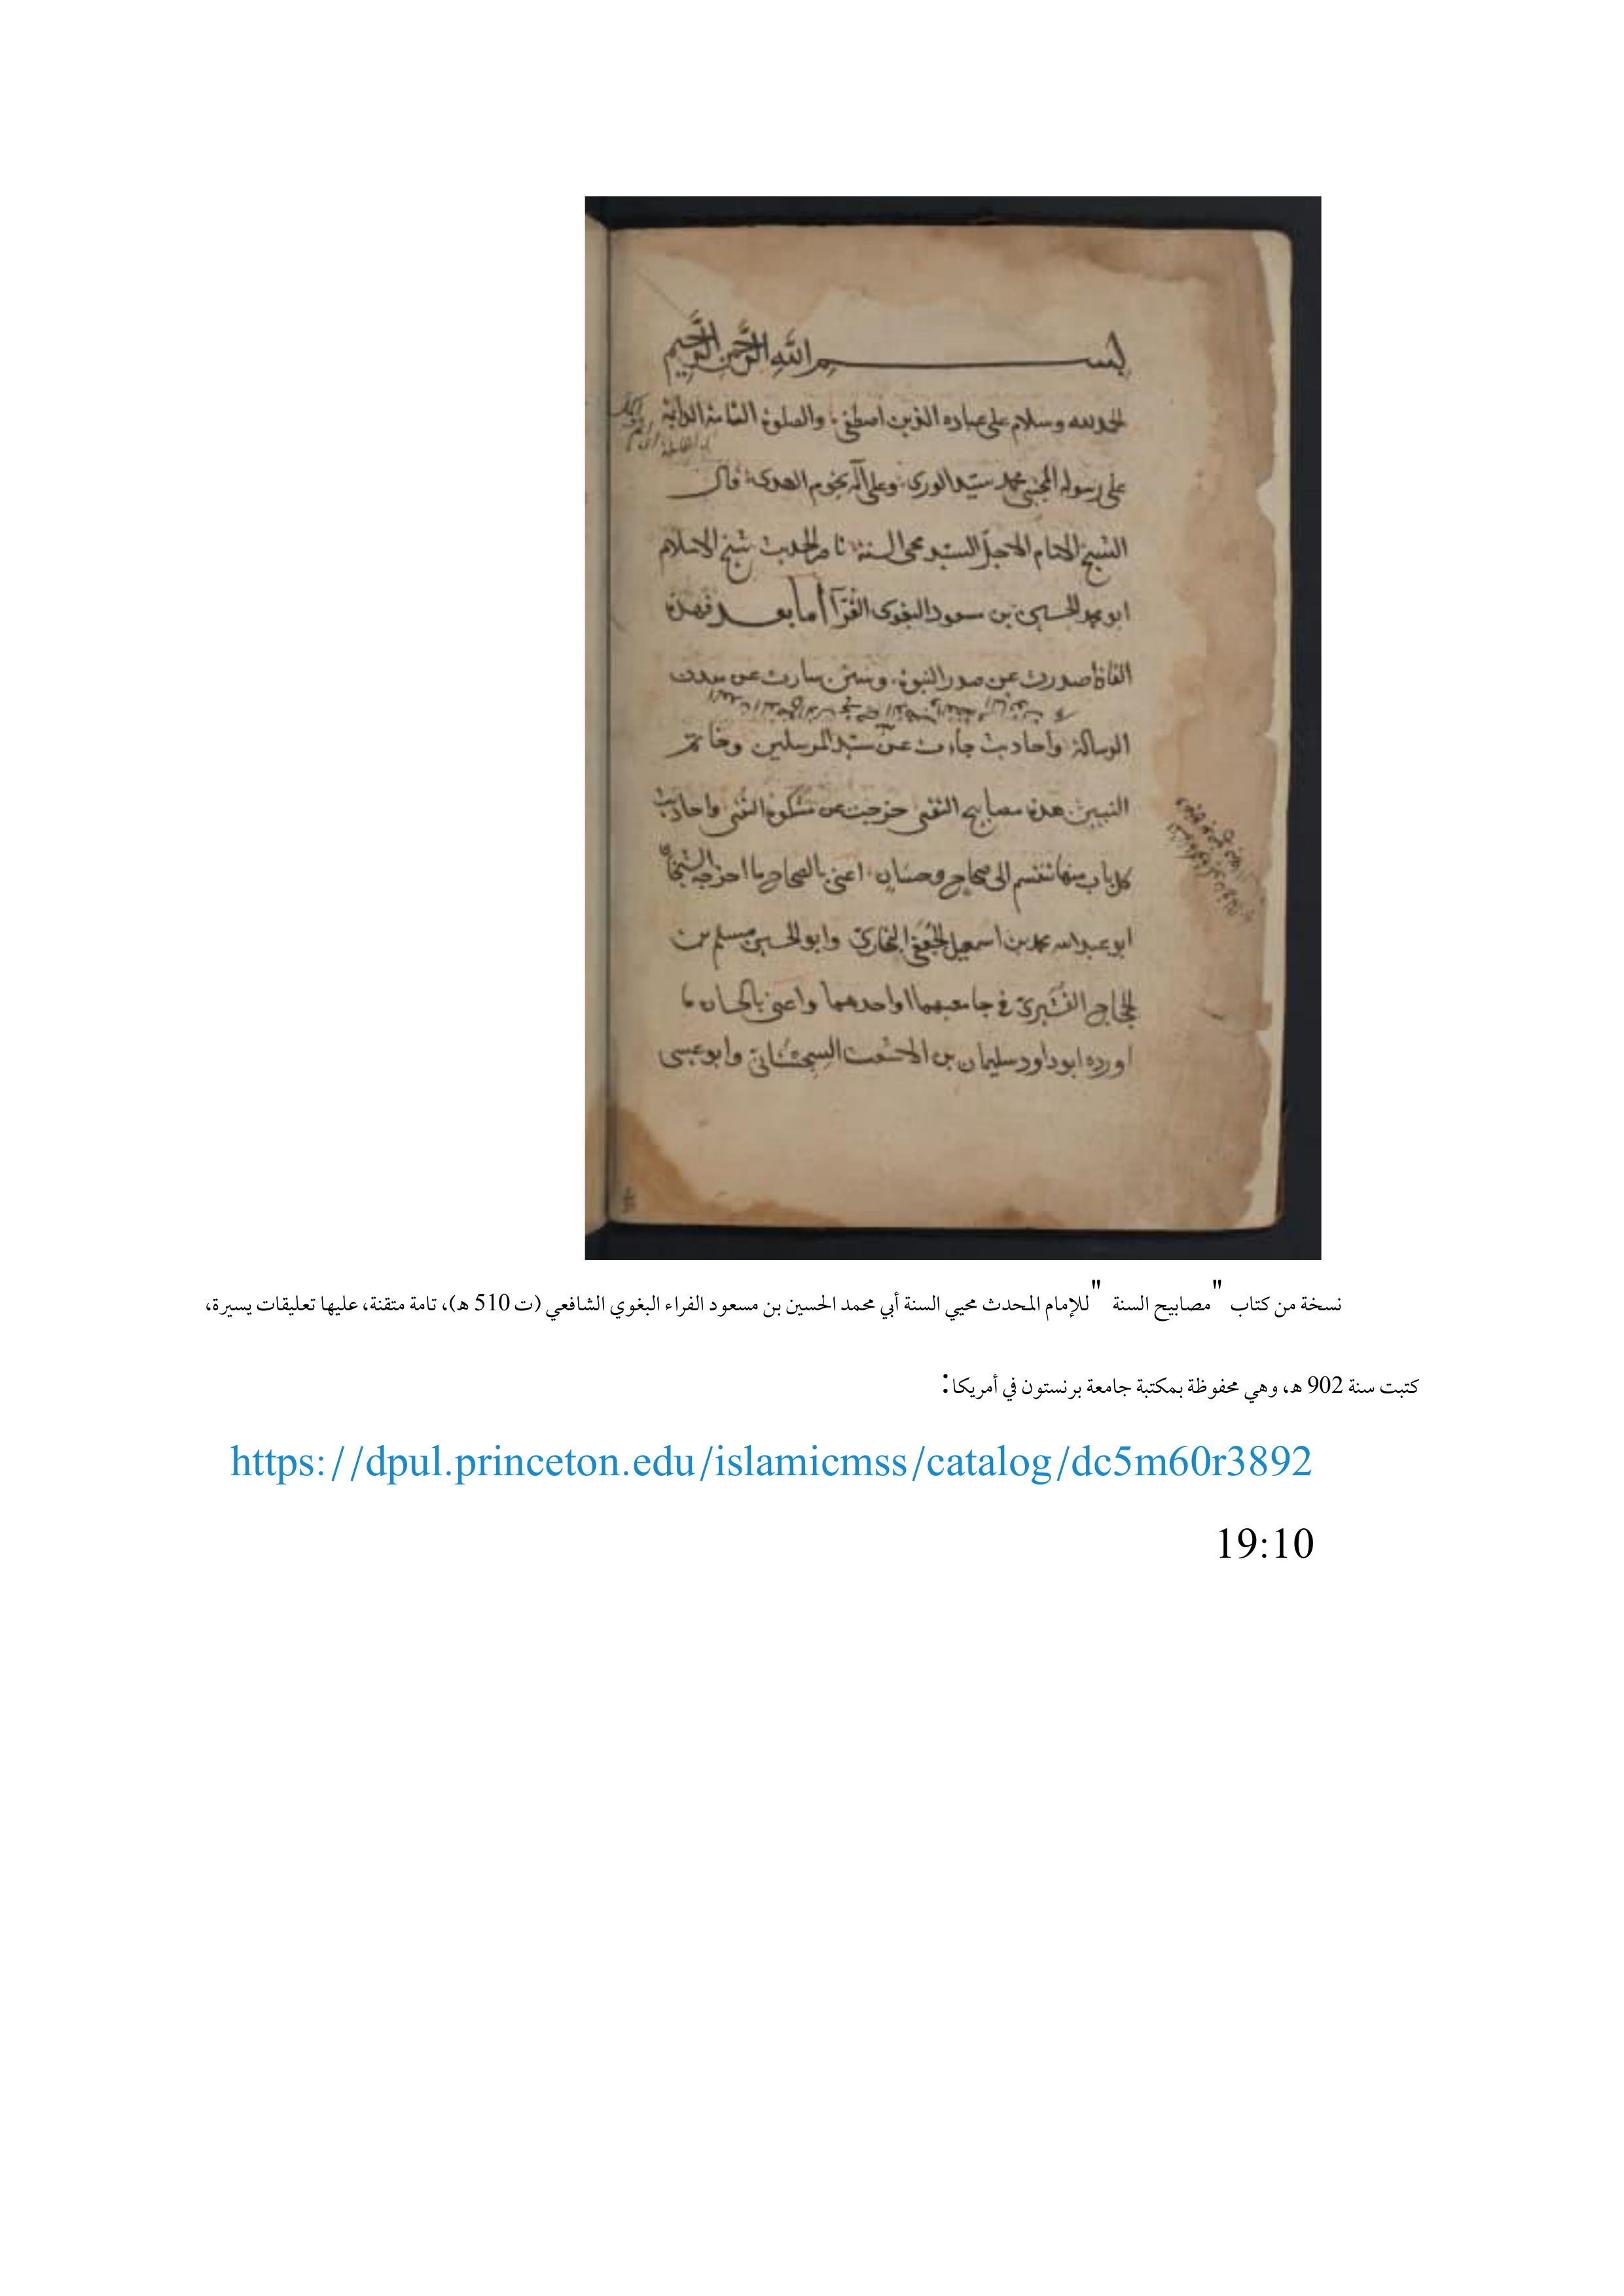 بسم الله الرحمن الرحيم
الحمد لله وسلام على عباده الذين اصطفى والصلوة التامة الدائمة
على رسوله المجتبى محمد سيد الورى وعلى آله نجوم الهدى قال
الشيخ الامام الاجل السيد محى السنة ناصر الحديث شيخ الاسلام
ابو محمد الحسين بن مسعود البغوى الفرآ اما بعد فهذه
الفاظ صدرت عن صدر النبوة وسنن سارت عن معدن
الرسالة واحاديث جاءت عن سيد المرسلين وخاتم
النبيين هذه مصابيح خرجت عن مشكوة التقى واحاديث
كل باب منها تنقسم الى صحاح وحسان اعنى بالصحاح ما اخرجه الشيخان
ابو عبد الله محمد بن اسمعيل الجعفى البخارى وابو الحسين مسلم بن
الحجاج القشيرى فى جامعيهما او احدهما واعنى بالحسان ما
اورده ابو داود سليمان بن الاشعث السجستانى وابو عيسى
نسخة من كتاب "مصابيح السنة" للإمام المحدث محيي السنة أبي محمد الحسين بن مسعود الفراء البغوي الشافعي (ت 510 هـ)، تامة متقنة، عليها تعليقات يسيرة،
كتبت سنة 902 هـ، وهي محفوظة بمكتبة جامعة برنستون في أمريكا:
https://dpul.princeton.edu/islamicmss/catalog/dc5m60r3892
19:10